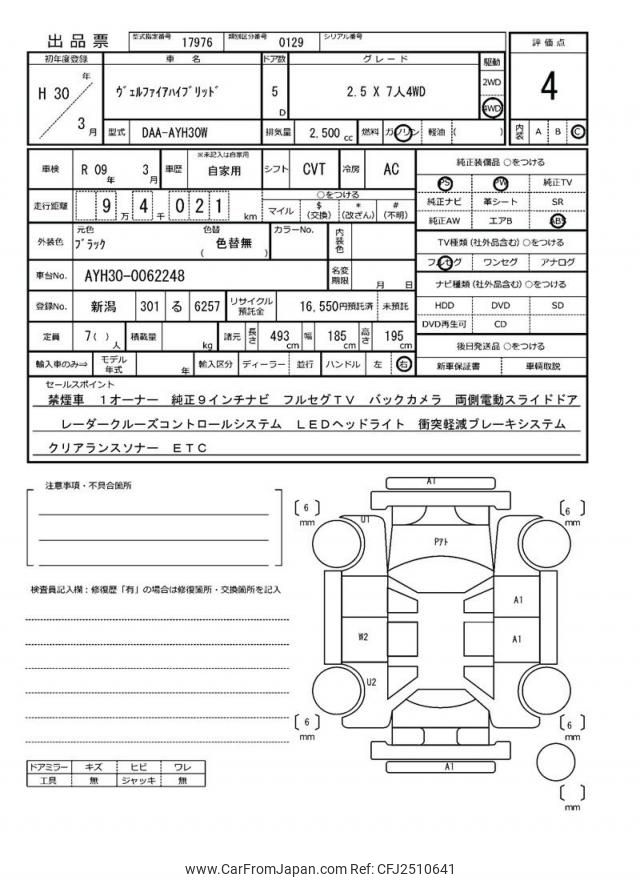 出品票 型式指定番号 17976 類別区分番号 0129 シリアル番号
初年度登録 車名 ドア数 グレード 駆動 評価点
H 30 年 3 月 ヴェルファイアハイブリッド 5 D 2.5 X 7人4WD 2WD 4WD 4
型式 DAA-AYH30W 排気量 2,500 cc 燃料 ガソリン 軽油 ( ) 内装 A B C
車検 R 09 年 3 月 車歴 ※未記入は自家用 自家用 シフト CVT 冷房 AC
走行距離 9 万 4 千 0 2 1 km ○をつける マイル $ (交換) * (改ざん) # (不明)
外装色 元色 ブラック 色替 ( 色替無 ) カラーNo. 内装色
車台No. AYH30-0062248 名変期限 月 日
登録No. 新潟 301 る 6257 リサイクル預託金 16,550円預託済 未預託
定員 7( ) 人 積載量 kg 諸元 長さ 493 cm 幅 185 cm 高さ 195 cm
輸入車のみ⇒ モデル年式 年 輸入区分 ディーラー 並行 ハンドル 左 右
純正装備品 ○をつける
PS PW 純正TV
純正ナビ 革シート SR
純正AW エアB ABS
TV種類(社外品含む)○をつける
フルセグ ワンセグ アナログ
ナビ種類(社外品含む)○をつける
HDD DVD SD
DVD再生可 CD
後日発送品 ○をつける
新車保証書 車輌取説
セールスポイント
禁煙車 1オーナー 純正9インチナビ フルセグTV バックカメラ 両側電動スライドドア
レーダークルーズコントロールシステム LEDヘッドライト 衝突軽減ブレーキシステム
クリアランスソナー ETC
注意事項・不具合箇所
検査員記入欄：修復歴「有」の場合は修復箇所・交換箇所を記入
A1
6 mm U1 6 mm
Pｱﾄ
A1
W2 A1
U2
6 mm 6 mm
A1
mm
ドアミラー キズ ヒビ ワレ
工具 無 ジャッキ 無
www.CarFromJapan.com Ref: CFJ2510641